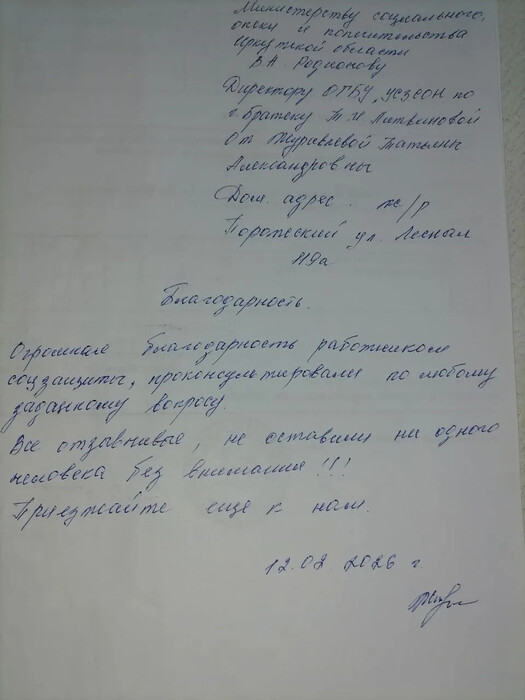 Министерству социального,
опеки и попечительства
Иркутской области
В.А. Родионову
Директору ОГБУ "УСЗСОН по
г. Братску Т.И Литвиновой
От Журавлевой Татьяны
Александровны
Дом. адрес. ж/р
Порожский ул. Лесная
119а
Благодарность.
Огромная благодарность работникам
соцзащиты, проконсультировали по любому
заданному вопросу.
Все отзывчивые, не оставили ни одного
человека без внимания!!!
Приезжайте еще к нам.
12.02 2026 г.